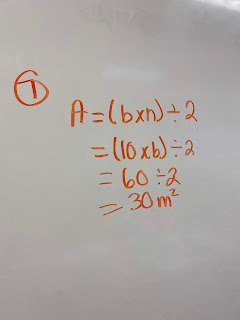 ①
A = (b x h) ÷ 2
= (10 x 6) ÷ 2
= 60 ÷ 2
= 30 m²